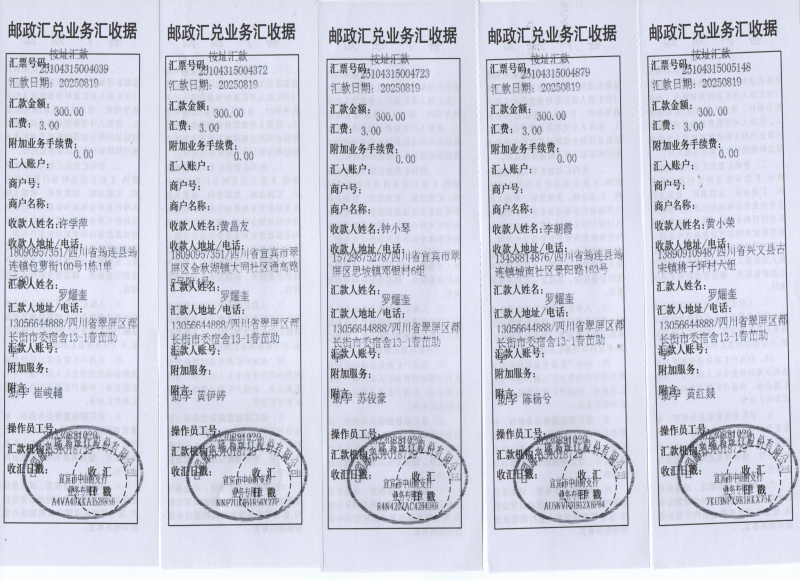 邮政汇兑业务汇收据
按址汇款
汇票号码:
25104315004039
汇款日期: 20250819
汇款金额:
300.00
汇费: 3.00
附加业务手续费:
0.00
汇入账户:
商户号:
商户名称:
收款人姓名:许学萍
收款人地址/电话:
18090957351/四川省筠连县筠
连镇包萝街100号1栋1单
汇款人姓名:
罗耀奎
汇款人地址/电话:
13056644888/四川省翠屏区都
长街市委宿舍13-1春苗助
汇款人账号:
附加服务:
附言:
助学 崔峻輔
操作员工号:
汇款机构号:
收汇日戳:
收汇
日戳
宜宾市中山街支行
业务专用
邮政汇兑业务汇收据
按址汇款
汇票号码:
25104315004372
汇款日期: 20250819
汇款金额:
300.00
汇费: 3.00
附加业务手续费:
0.00
汇入账户:
商户号:
商户名称:
收款人姓名:黄昌友
收款人地址/电话:
18090957351/四川省宜宾市翠
屏区金秋湖镇大同社区通高路
汇款人姓名:
罗耀奎
汇款人地址/电话:
13056644888/四川省翠屏区都
长街市委宿舍13-1春苗助
汇款人账号:
附加服务:
附言:
助学 黄伊婷
操作员工号:
汇款机构号:
收汇日戳:
收汇
日戳
宜宾市中山街支行
业务专用
邮政汇兑业务汇收据
按址汇款
汇票号码:
25104315004723
汇款日期: 20250819
汇款金额:
300.00
汇费: 3.00
附加业务手续费:
0.00
汇入账户:
商户号:
商户名称:
收款人姓名:钟小琴
收款人地址/电话:
15729875278/四川省宜宾市翠
屏区思坡镇邓银村6组
汇款人姓名:
罗耀奎
汇款人地址/电话:
13056644888/四川省翠屏区都
长街市委宿舍13-1春苗助
汇款人账号:
附加服务:
附言:
助学 苏俊豪
操作员工号:
汇款机构号:
收汇日戳:
收汇
日戳
宜宾市中山街支行
业务专用
邮政汇兑业务汇收据
按址汇款
汇票号码:
25104315004879
汇款日期: 20250819
汇款金额:
300.00
汇费: 3.00
附加业务手续费:
0.00
汇入账户:
商户号:
商户名称:
收款人姓名:李朝霞
收款人地址/电话:
13458814876/四川省筠连县筠
连镇城南社区景阳路163号
汇款人姓名:
罗耀奎
汇款人地址/电话:
13056644888/四川省翠屏区都
长街市委宿舍13-1春苗助
汇款人账号:
附加服务:
附言:
助学 陈杨兮
操作员工号:
汇款机构号:
收汇日戳:
收汇
日戳
宜宾市中山街支行
业务专用
邮政汇兑业务汇收据
按址汇款
汇票号码:
25104315005148
汇款日期: 20250819
汇款金额:
300.00
汇费: 3.00
附加业务手续费:
0.00
汇入账户:
商户号:
商户名称:
收款人姓名:黄小荣
收款人地址/电话:
13890910948/四川省兴文县古
宋镇桃子坪村六组
汇款人姓名:
罗耀奎
汇款人地址/电话:
13056644888/四川省翠屏区都
长街市委宿舍13-1春苗助
汇款人账号:
附加服务:
附言:
助学 黄红燚
操作员工号:
汇款机构号:
收汇日戳:
收汇
日戳
宜宾市中山街支行
业务专用